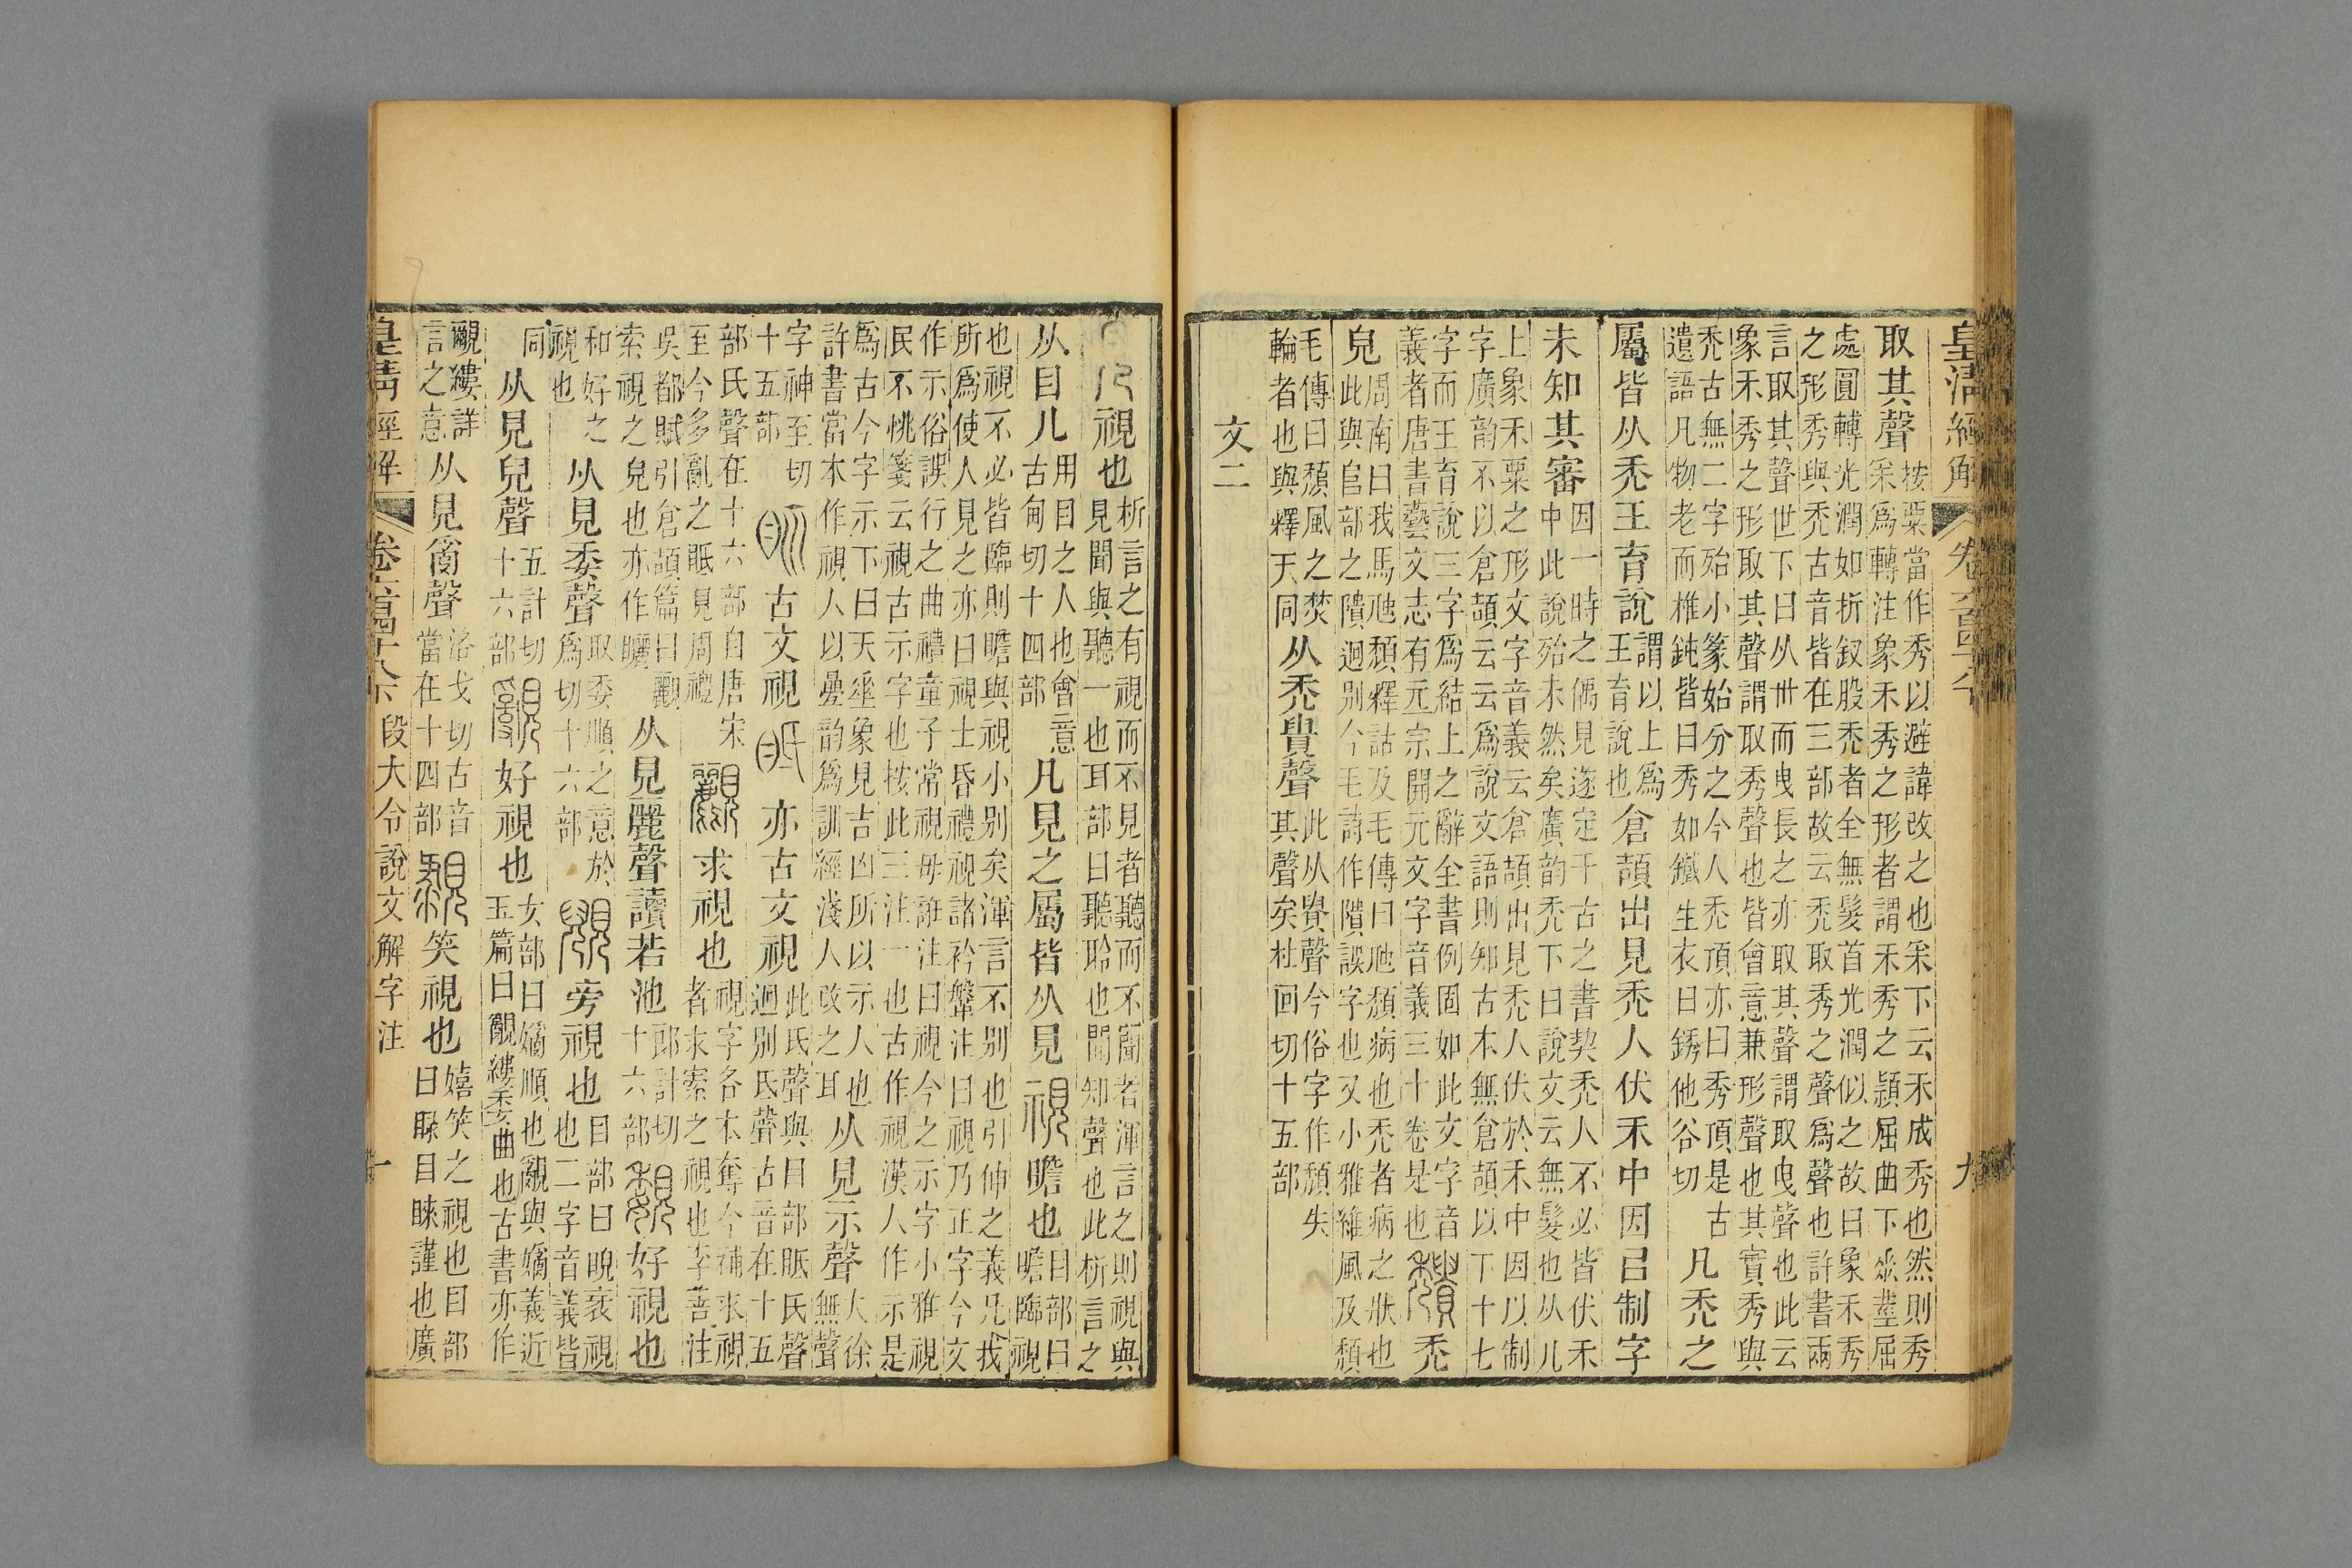 皇清經解 卷六百四十八 九
取其聲
按粟當作秀以避諱改之也采下云禾成秀也然則秀
采爲轉注象禾秀之形者謂禾秀之穎屈曲下垂莖屈
處圓轉光潤如折釵股禿者全無髮首光潤似之故曰象禾秀
之形秀與禿古音皆在三部故云禿取秀之聲爲聲也許書兩
言取其聲世下曰从丗而曳長之亦取其聲謂取曳聲也此云
象禾秀之形取其聲謂取秀聲也皆會意兼形聲也其實秀與
禿古無二字殆小篆始分之今人禿頂亦曰秀頂是古
遺語凡物老而椎鈍皆曰秀如鐵生衣曰銹他谷切
凡禿之
屬皆从禿王育說
謂以上爲
王育說也
倉頡出見禿人伏禾中因㠯制字
未知其審
因一時之偶見遂定千古之書契禿人不必皆伏禾
中此說殆未然矣廣韵禿下曰說文云無髮也从儿
上象禾粟之形文字音義云倉頡出見禿人伏於禾中因以制
字廣韵不以倉頡云云爲說文語則知古本無倉頡以下十七
字而王育說三字爲結上之辭全書例固如此文字音
義者唐書藝文志有元宗開元文字音義三十卷是也
穨禿
皃
周南曰我馬虺穨釋詁及毛傳曰虺穨病也禿者病之狀也
此與𨸏部之隤迥别今毛詩作隤誤字也又小雅維風及穨
毛傳曰穨風之焚
輪者也與釋天同
从禿貴聲
此从貴聲今俗字作頹失
其聲矣杜回切十五部
文二
見視也
析言之有視而不見者聽而不聞者渾言之則視與
見聞與聽一也耳部曰聽聆也聞知聲也此析言之
从目儿
用目之人也會意
古甸切十四部
凡見之屬皆从見視瞻也
目部曰
瞻臨視
也視不必皆臨則瞻與視小别矣渾言不别也引伸之義凡我
所爲使人見之亦曰視士昏禮視諸衿鞶注曰視乃正字今文
作示俗誤行之曲禮童子常視毋誑注曰視今之示字小雅視
民不恌箋云視古示字也按此三注一也古作視漢人作示是
爲古今字示下曰天垂象見吉凶所以示人也
許書當本作視人以疊韵爲訓經淺人改之耳
从見示聲
大徐
無聲
字神至切
十五部
古文視 亦古文視
此氏聲與目部眡氐聲
迥别氐聲古音在十五
部氏聲在十六部自唐宋
至今多亂之眡見周禮
觀求視也
視字各本奪今補求視
者求索之視也李善注
吳都賦引倉頡篇曰
索視之皃也亦作矖
从見麗聲讀若池
郎計切
十六部
覣好視也
和好之
視也
从見委聲
取委順之意於
爲切十六部
覞旁視也
目部曰睨衺視
也二字音義皆
同
从見兒聲
五計切
十六部
覶好視也
女部曰嫡順也覶與嫡義近
玉篇曰覶縷委曲也古書亦作
覼縷詳
言之意
从見𤔔聲
洛戈切古音
當在十四部
親笑視也
嬉笑之視也目部
曰睩目睞謹也廣
皇清經解 卷六百四十八下 段大令說文解字注 一